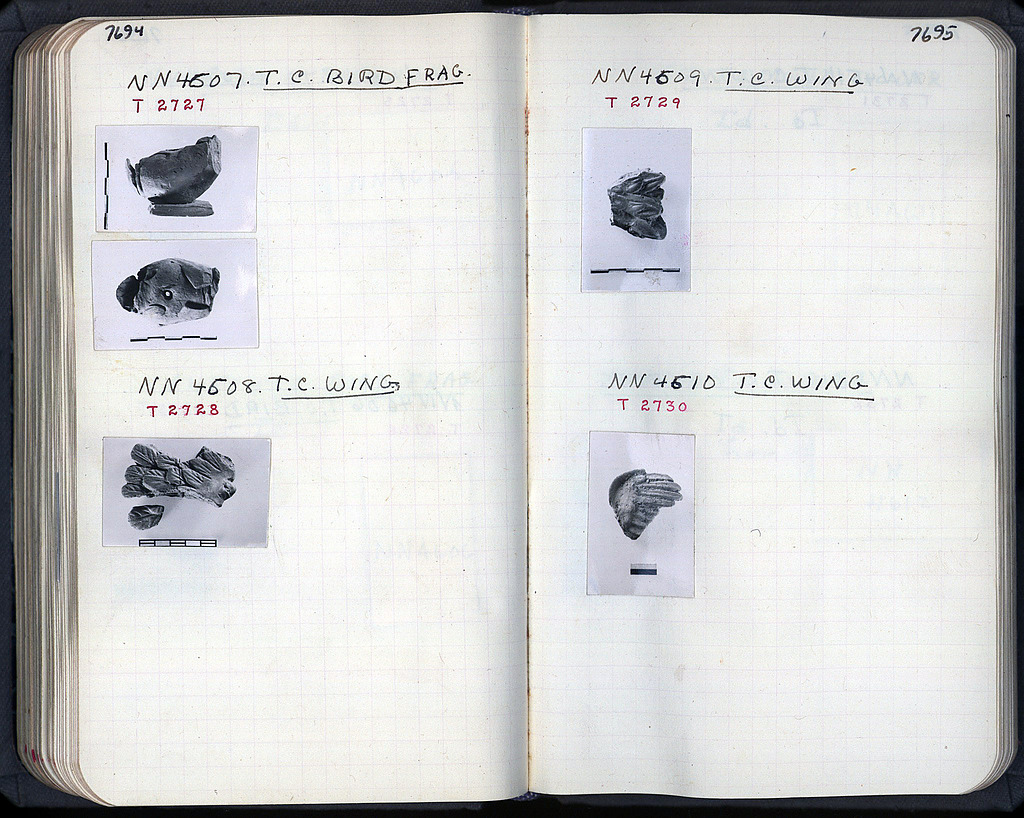 7694
NN 4507. T. C. BIRD FRAG.
T 2727
NN 4508. T. C. WING.
T 2728
7695
NN 4509. T. C. WING
T 2729
NN 4510 T. C. WING
T 2730